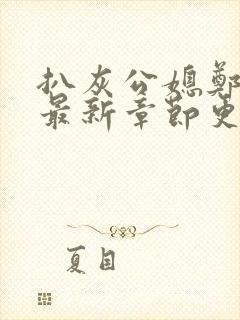 扒灰公媳鄭
最新章節更
夏目